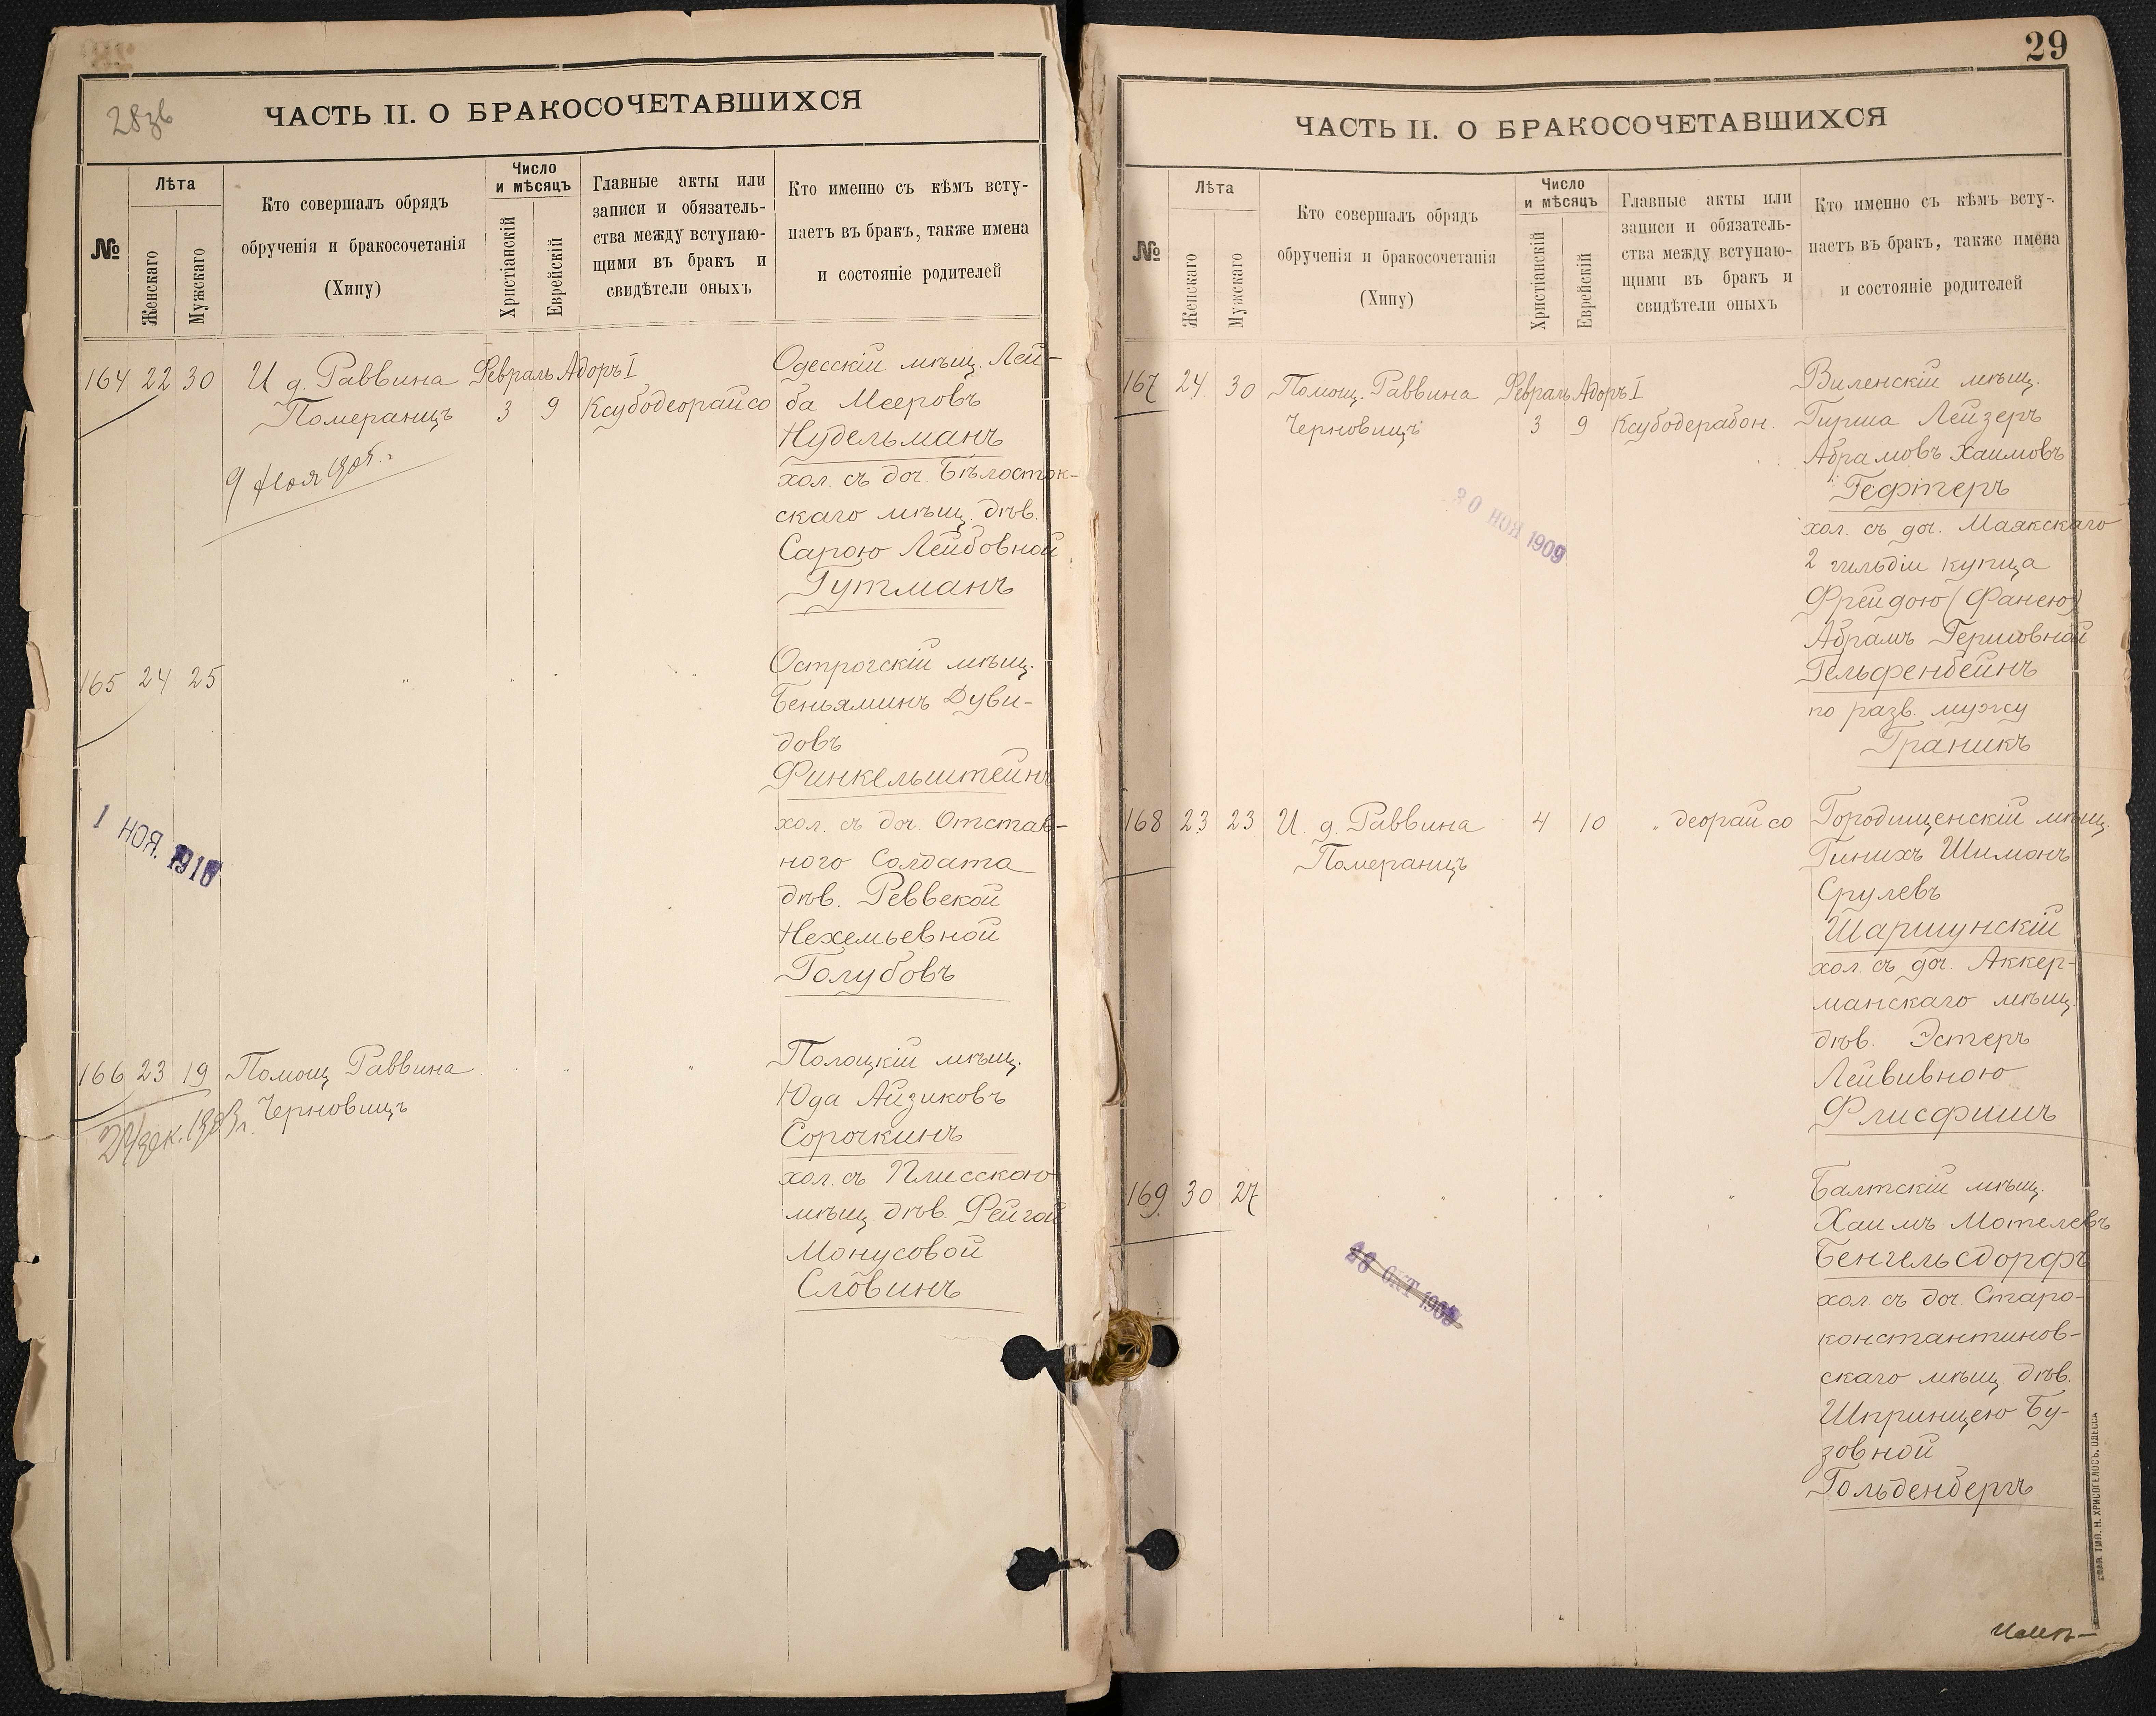 28зв
ЧАСТЬ II. О БРАКОСОЧЕТАВШИХСЯ
№
Лѣта
Женскаго
Мужскаго
Кто совершалъ обрядъ
обрученія и бракосочетанія
(Хипу)
Число
и мѣсяцъ
Христіанскій
Еврейскій
Главные акты или
записи и обязатель-
ства между вступаю-
щими въ бракъ и
свидѣтели оныхъ
Кто именно съ кѣмъ всту-
паетъ въ бракъ, также имена
и состояніе родителей
164 22 30 И д. Раввина Февраль Адоръ I
Померанцъ 3 9 Ксубодеорайсо
Одесскій мѣщ. Лей-
ба Мееровъ
Нудельманъ
хол. съ доч. Бѣлосток-
скаго мѣщ. дѣв.
Сарою Лейбовной
Гутманъ
9 Ноя 1905.
165 24 25 "
Острогскій мѣщ.
Беньяминъ Дуви-
довъ
Финкельштейнъ
хол. съ доч. Отстав-
ного Солдата
дѣв. Реввекой
Нехемьевной
Голубовъ
1 НОЯ. 1910
166 23 19 Помощ Раввина
Черновицъ
Полоцкій мѣщ.
Юда Айзиковъ
Сорочкинъ
хол. съ Плисскаго
мѣщ. дѣв. Фейгой
Монусовой
Словинъ
29
ЧАСТЬ II. О БРАКОСОЧЕТАВШИХСЯ
№
Лѣта
Женскаго
Мужскаго
Кто совершалъ обрядъ
обрученія и бракосочетанія
(Хипу)
Число
и мѣсяцъ
Христіанскій
Еврейскій
Главные акты или
записи и обязатель-
ства между вступаю-
щими въ бракъ и
свидѣтели оныхъ
Кто именно съ кѣмъ всту-
паетъ въ бракъ, также имена
и состояніе родителей
167 24 30 Помощ. Раввина Февраль Адоръ I
Черновицъ 3 9 Ксубодерабон.
Виленскій мѣщ.
Гирша Лейзеръ
Абрамовъ Хаимовъ
Гефтеръ
хол. съ доч. Маякскаго
2 гильдіи купца
Фрейдою (Фанею)
Абрамъ Гершовной
Гельфенбейнъ
по разв. мужу
Граникъ
30 НОЯ 1909
168 23 23 И. д. Раввина 4 10 " деорайсо
Померанцъ
Городищенскій мѣщ.
Гинихъ Шимонъ
Срулевъ
Шаршунскій
хол. съ доч. Аккер-
манскаго мѣщ.
дѣв. Эстеръ
Лейвивною
Флисфишъ
169 30 27 "
Балтскій мѣщ.
Хаимъ Мотелевъ
Бенгельсдорфъ
хол. съ доч. Старо-
константинов-
скаго мѣщ. дѣв.
Шпринцею Бу-
зовной
Гольденбергъ
ОКТ 190
ТИП. Н. ХРИСОГЕЛОСЪ, ОДЕССА